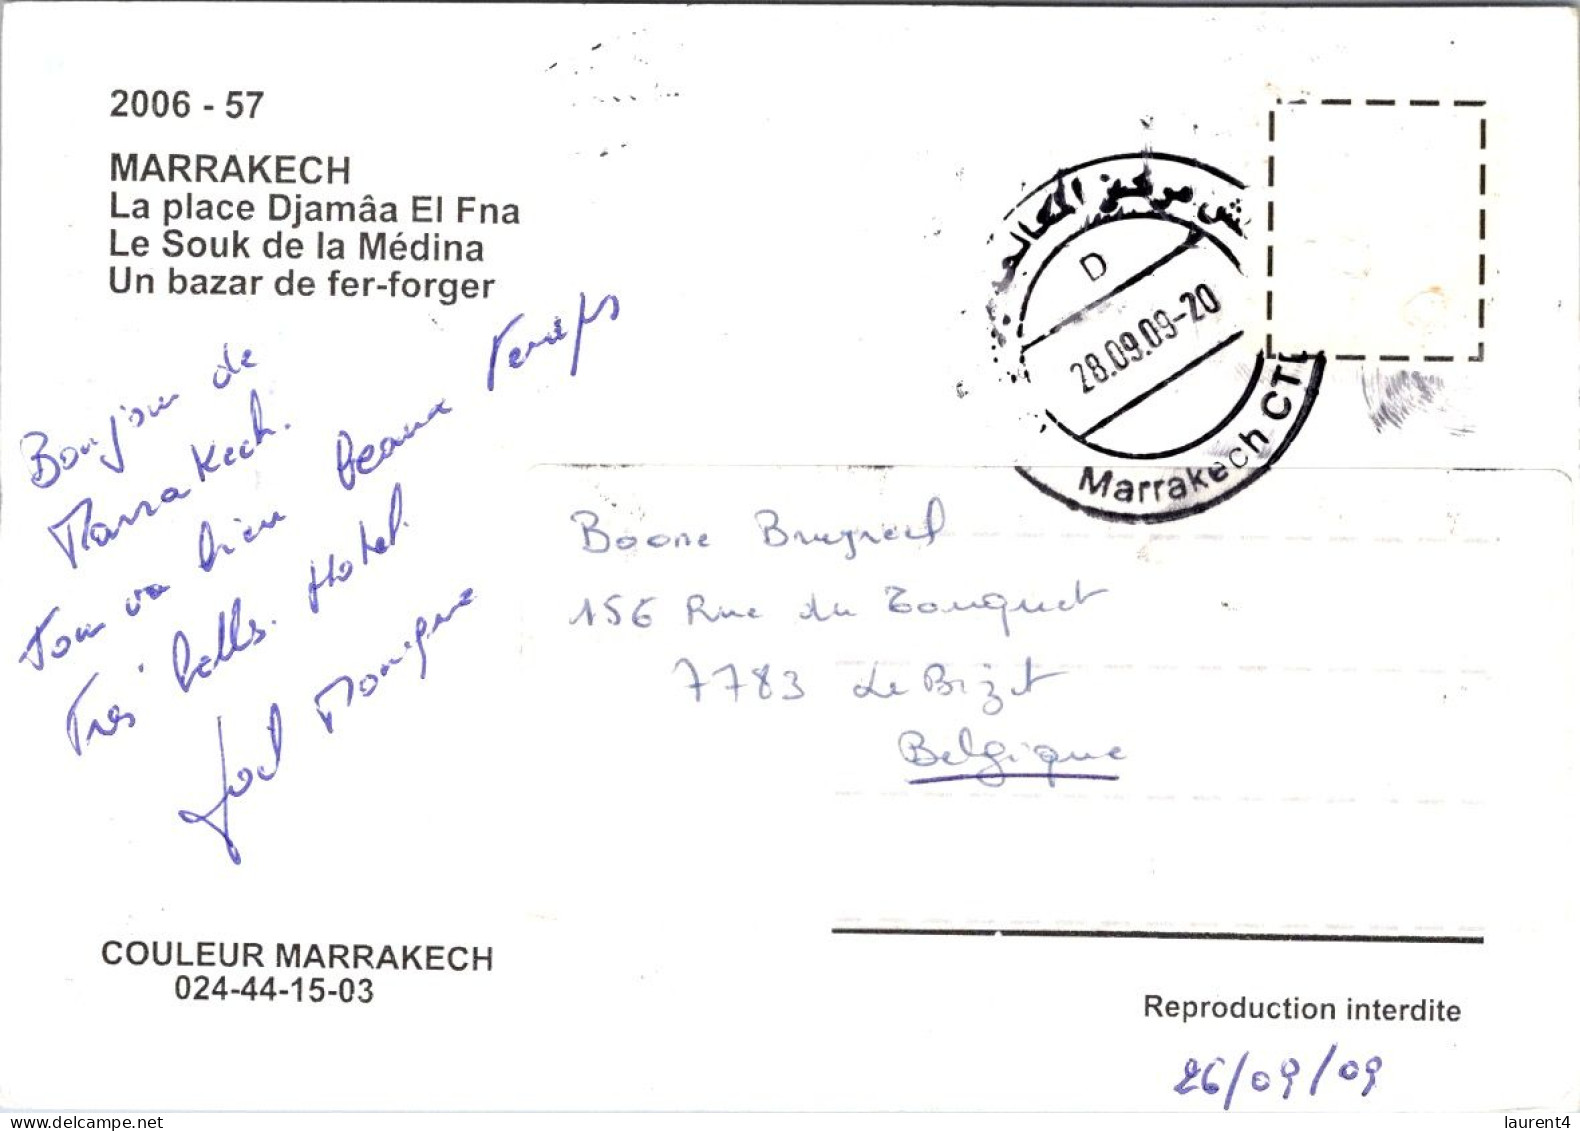 2006 - 57
MARRAKECH
La place Djamâa El Fna
Le Souk de la Médina
Un bazar de fer-forger
Bonjour de
Marrakech.
Tour va bien beaux Temps
Tres bells. Hotel.
Joel Monique
COULEUR MARRAKECH
024-44-15-03
مركز
D
28.09.09-20
Marrakech CT
Boone
156 Rue du Touquet
7783 Le Bizet
Belgique
Reproduction interdite
26/09/09
www.delcampe.net
laurent4